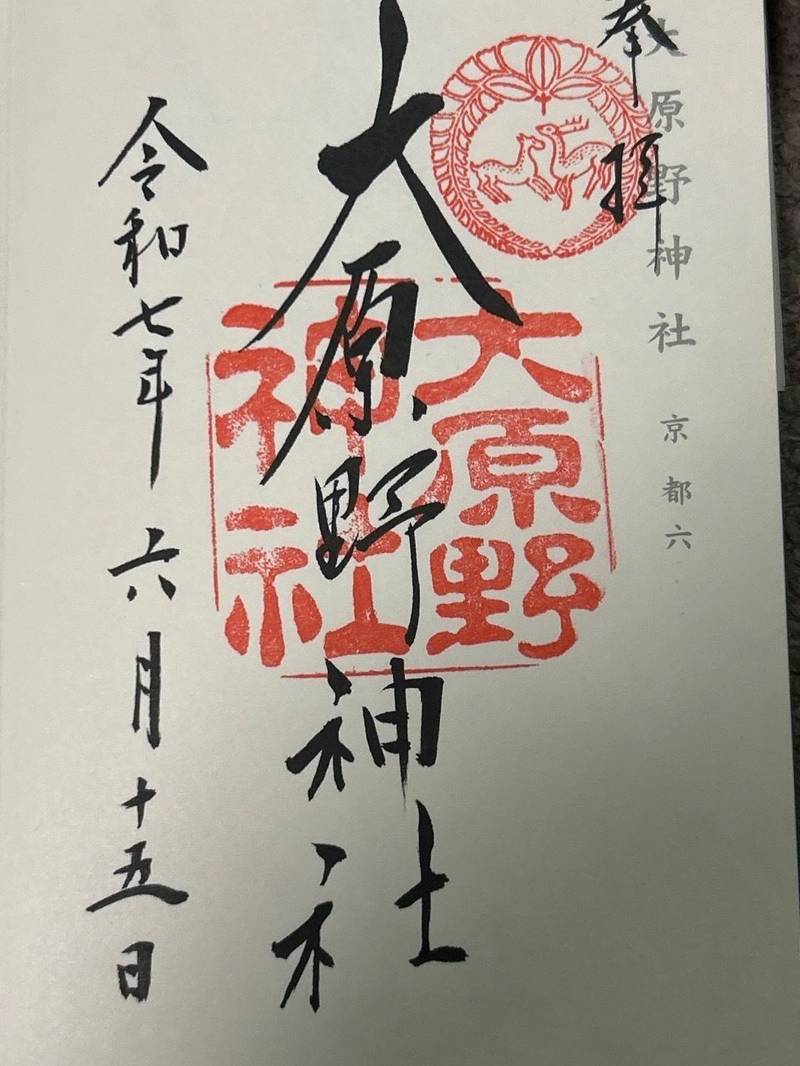 奉拝
大原野神社 京都六
大原野神社
大原野
神社
令和七年六月十五日